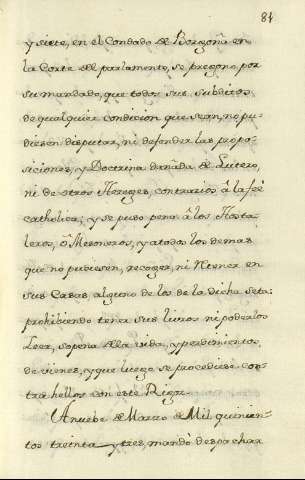 84
y siete, en el Condado de Borgoña en
la Corte del parlamento, se pregonó por
su mandado, que todos sus subditos
de qualquier condicion que sean, no pu-
diesen disputar, ni defender las propo-
siciones, y Doctrina dañada de Lutero,
ni de otros Hereges, contrarios â la feé
catholica; y se puso pena â los Hosta-
leros, ô Mesoneros, y atodos los demas
que no pudiesen, recoger, ni retener en
sus Casas alguno de los de la dicha seta:
prohibiendo tener sus libros ni poderlos
Leer, sopena dela vida, y perdimiento
de vienes, y que luego se procediese con-
tra hellos con este Rigor.
A nuebe de Marzo de Mil quinien-
tos treinta y tres, mandò despachar